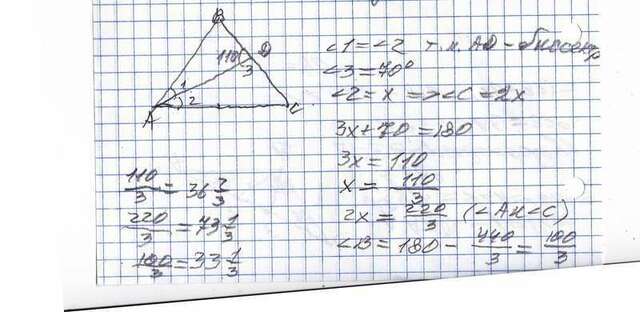 B
110
D
3
1
2
A
C
∠1 = ∠2 т.к. AD - биссектр
∠3 = 70°
∠2 = x => ∠C = 2x
3x + 70 = 180
3x = 110
x = 110/3
2x = 220/3 (∠A и ∠C)
∠B = 180 - 440/3 = 100/3
110/3 = 36 2/3
220/3 = 73 1/3
100/3 = 33 1/3